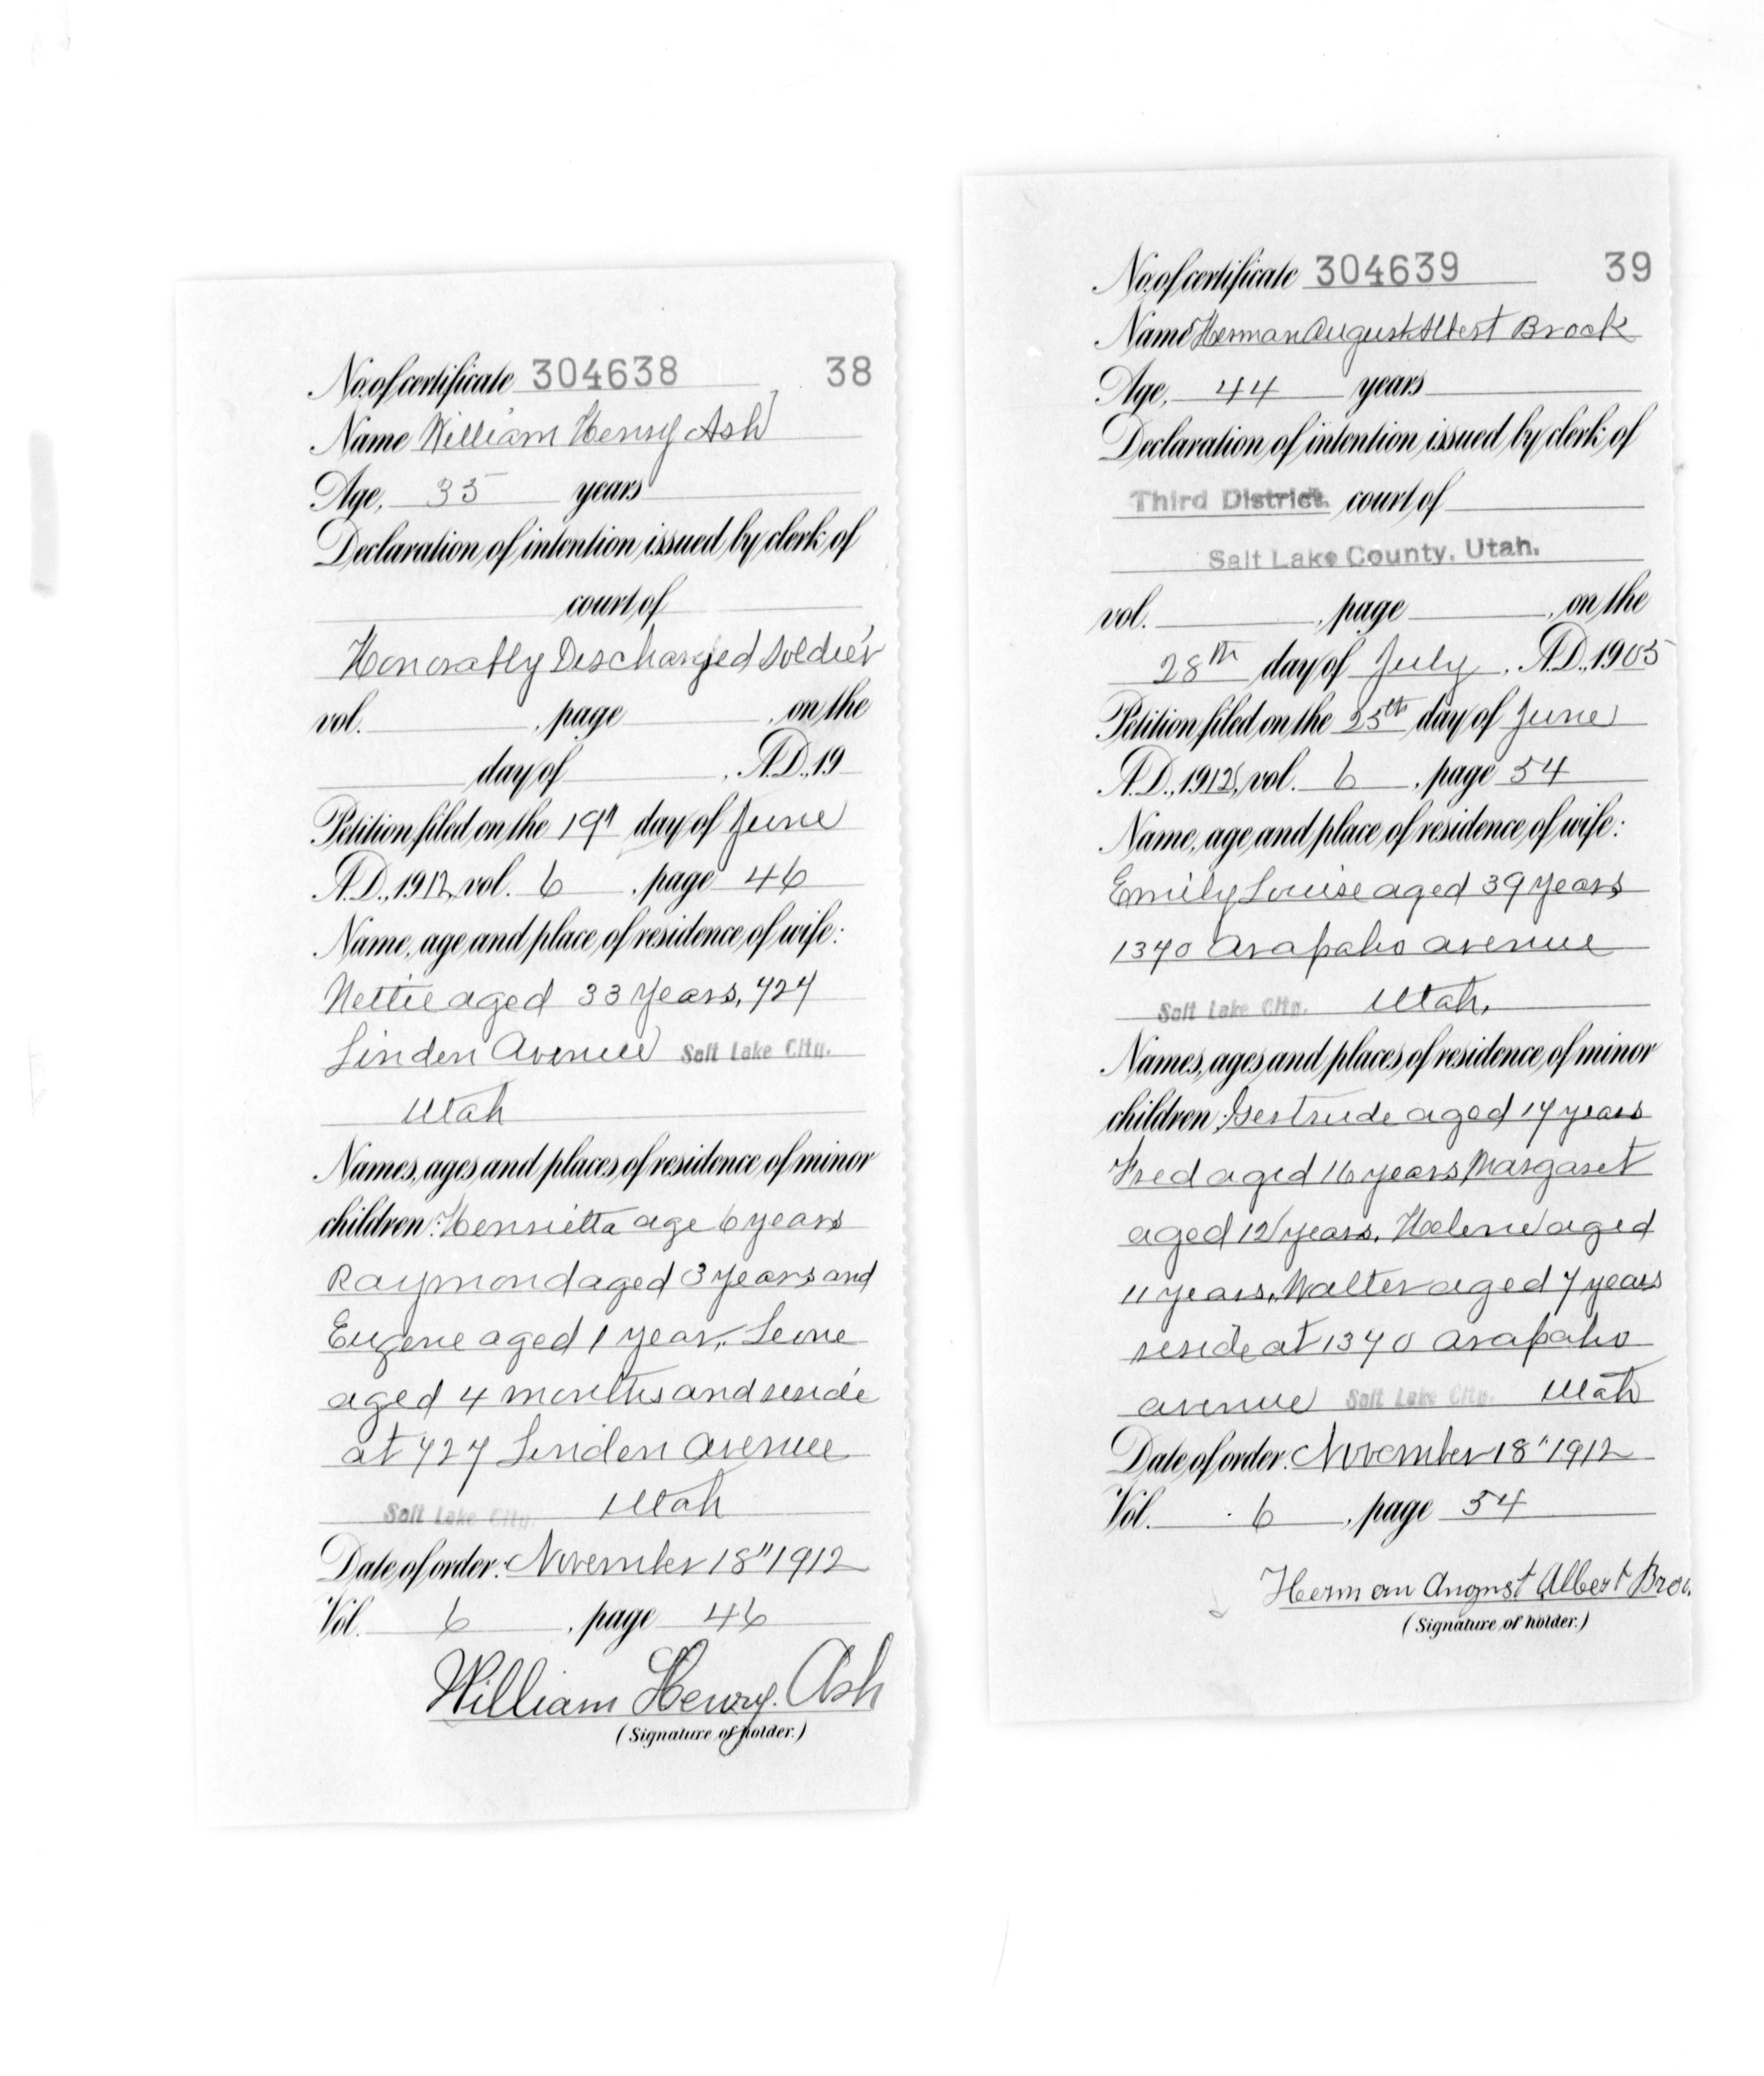 No. of certificate 304638 38
Name William Henry Ash
Age, 35 years
Declaration of intention issued by clerk of
court of
Honorably Discharged Soldier
vol. , page , on the
day of , A.D., 19
Petition filed on the 19" day of June
A.D., 1912, vol. 6 , page 46
Name, age and place of residence of wife:
Nettie aged 33 years, 727
Linden Avenue Salt Lake City.
Utah
Names, ages and places of residence of minor
children: Henrietta age 6 years
Raymond aged 3 years and
Eugene aged 1 year, Leone
aged 4 months and reside
at 727 Linden Avenue
Salt Lake City. Utah
Date of order: November 18" 1912
Vol. 6 , page 46
William Henry Ash
(Signature of holder.)
No. of certificate 304639 39
Name Herman August Albert Brook
Age, 44 years
Declaration of intention issued by clerk of
Third District. court of
Salt Lake County, Utah.
vol. , page , on the
28th day of July , A.D., 1905
Petition filed on the 25th day of June
A.D., 1912, vol. 6 , page 54
Name, age and place of residence of wife:
Emily Louise aged 39 years
1370 Arapaho avenue
Salt Lake City. Utah.
Names, ages and places of residence of minor
children: Gertrude aged 17 years
Fred aged 16 years Margaret
aged 12 years, Helene aged
11 years, Walter aged 7 years
reside at 1370 Arapaho
avenue Salt Lake City. Utah
Date of order: November 18" 1912
Vol. 6 , page 54
Herman August Albert
(Signature of holder.)